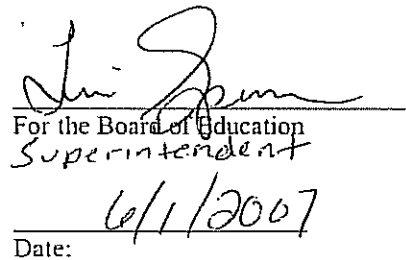 For the Board of Education
Superintendent
6/1/2007
Date: